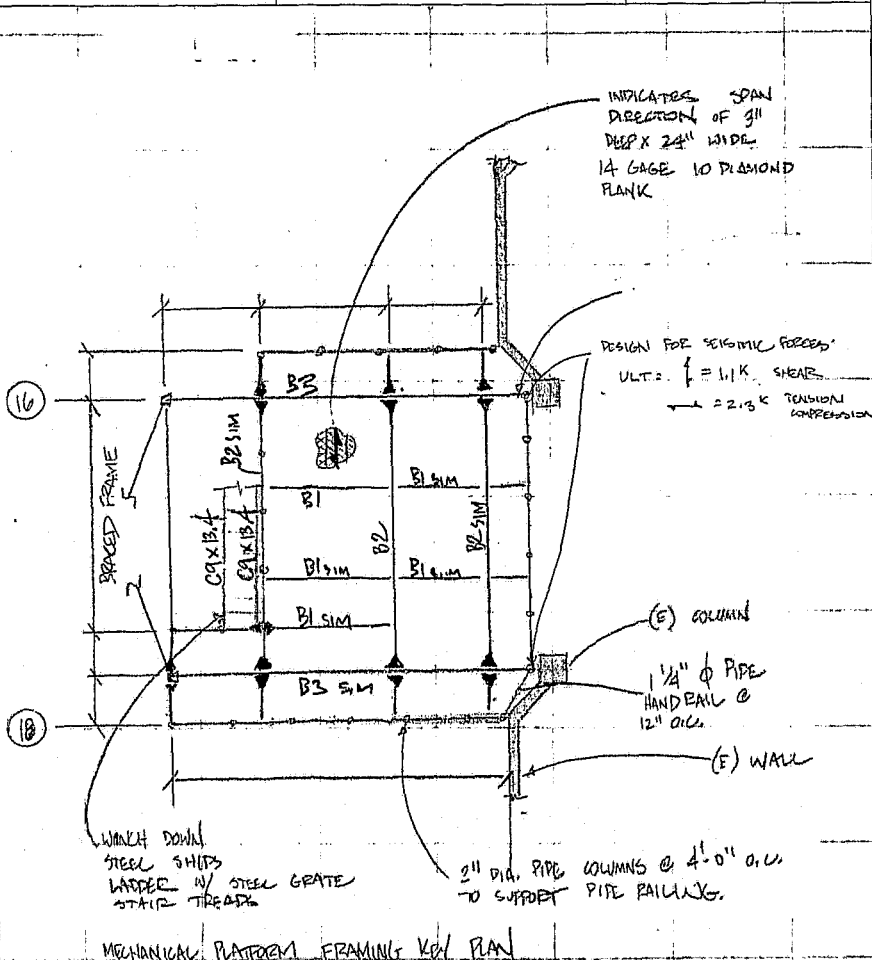 INDICATES SPAN
DIRECTION OF 3"
DEEP X 24" WIDE
14 GAGE 10 DIAMOND
PLANK
DESIGN FOR SEISMIC FORCES:
ULT: = 1.1K SHEAR
= 2.3K TENSION
COMPRESSION
16
B3
B2 SIM
BRACED FRAME
5
2
C9X13.4
C9X13.4
B1
B1 SIM
B2
B2 SIM
B1 SIM
B1 SIM
B1 SIM
B3 SIM
(E) COLUMN
1 1/4" ϕ PIPE
HANDRAIL @
12" O.C.
18
(E) WALL
WINCH DOWN
STEEL SHIPS
LADDER W/ STEEL GRATE
STAIR TREADS
2" DIA. PIPE COLUMNS @ 4'-0" O.C.
TO SUPPORT PIPE RAILING.
MECHANICAL PLATFORM FRAMING KEY PLAN